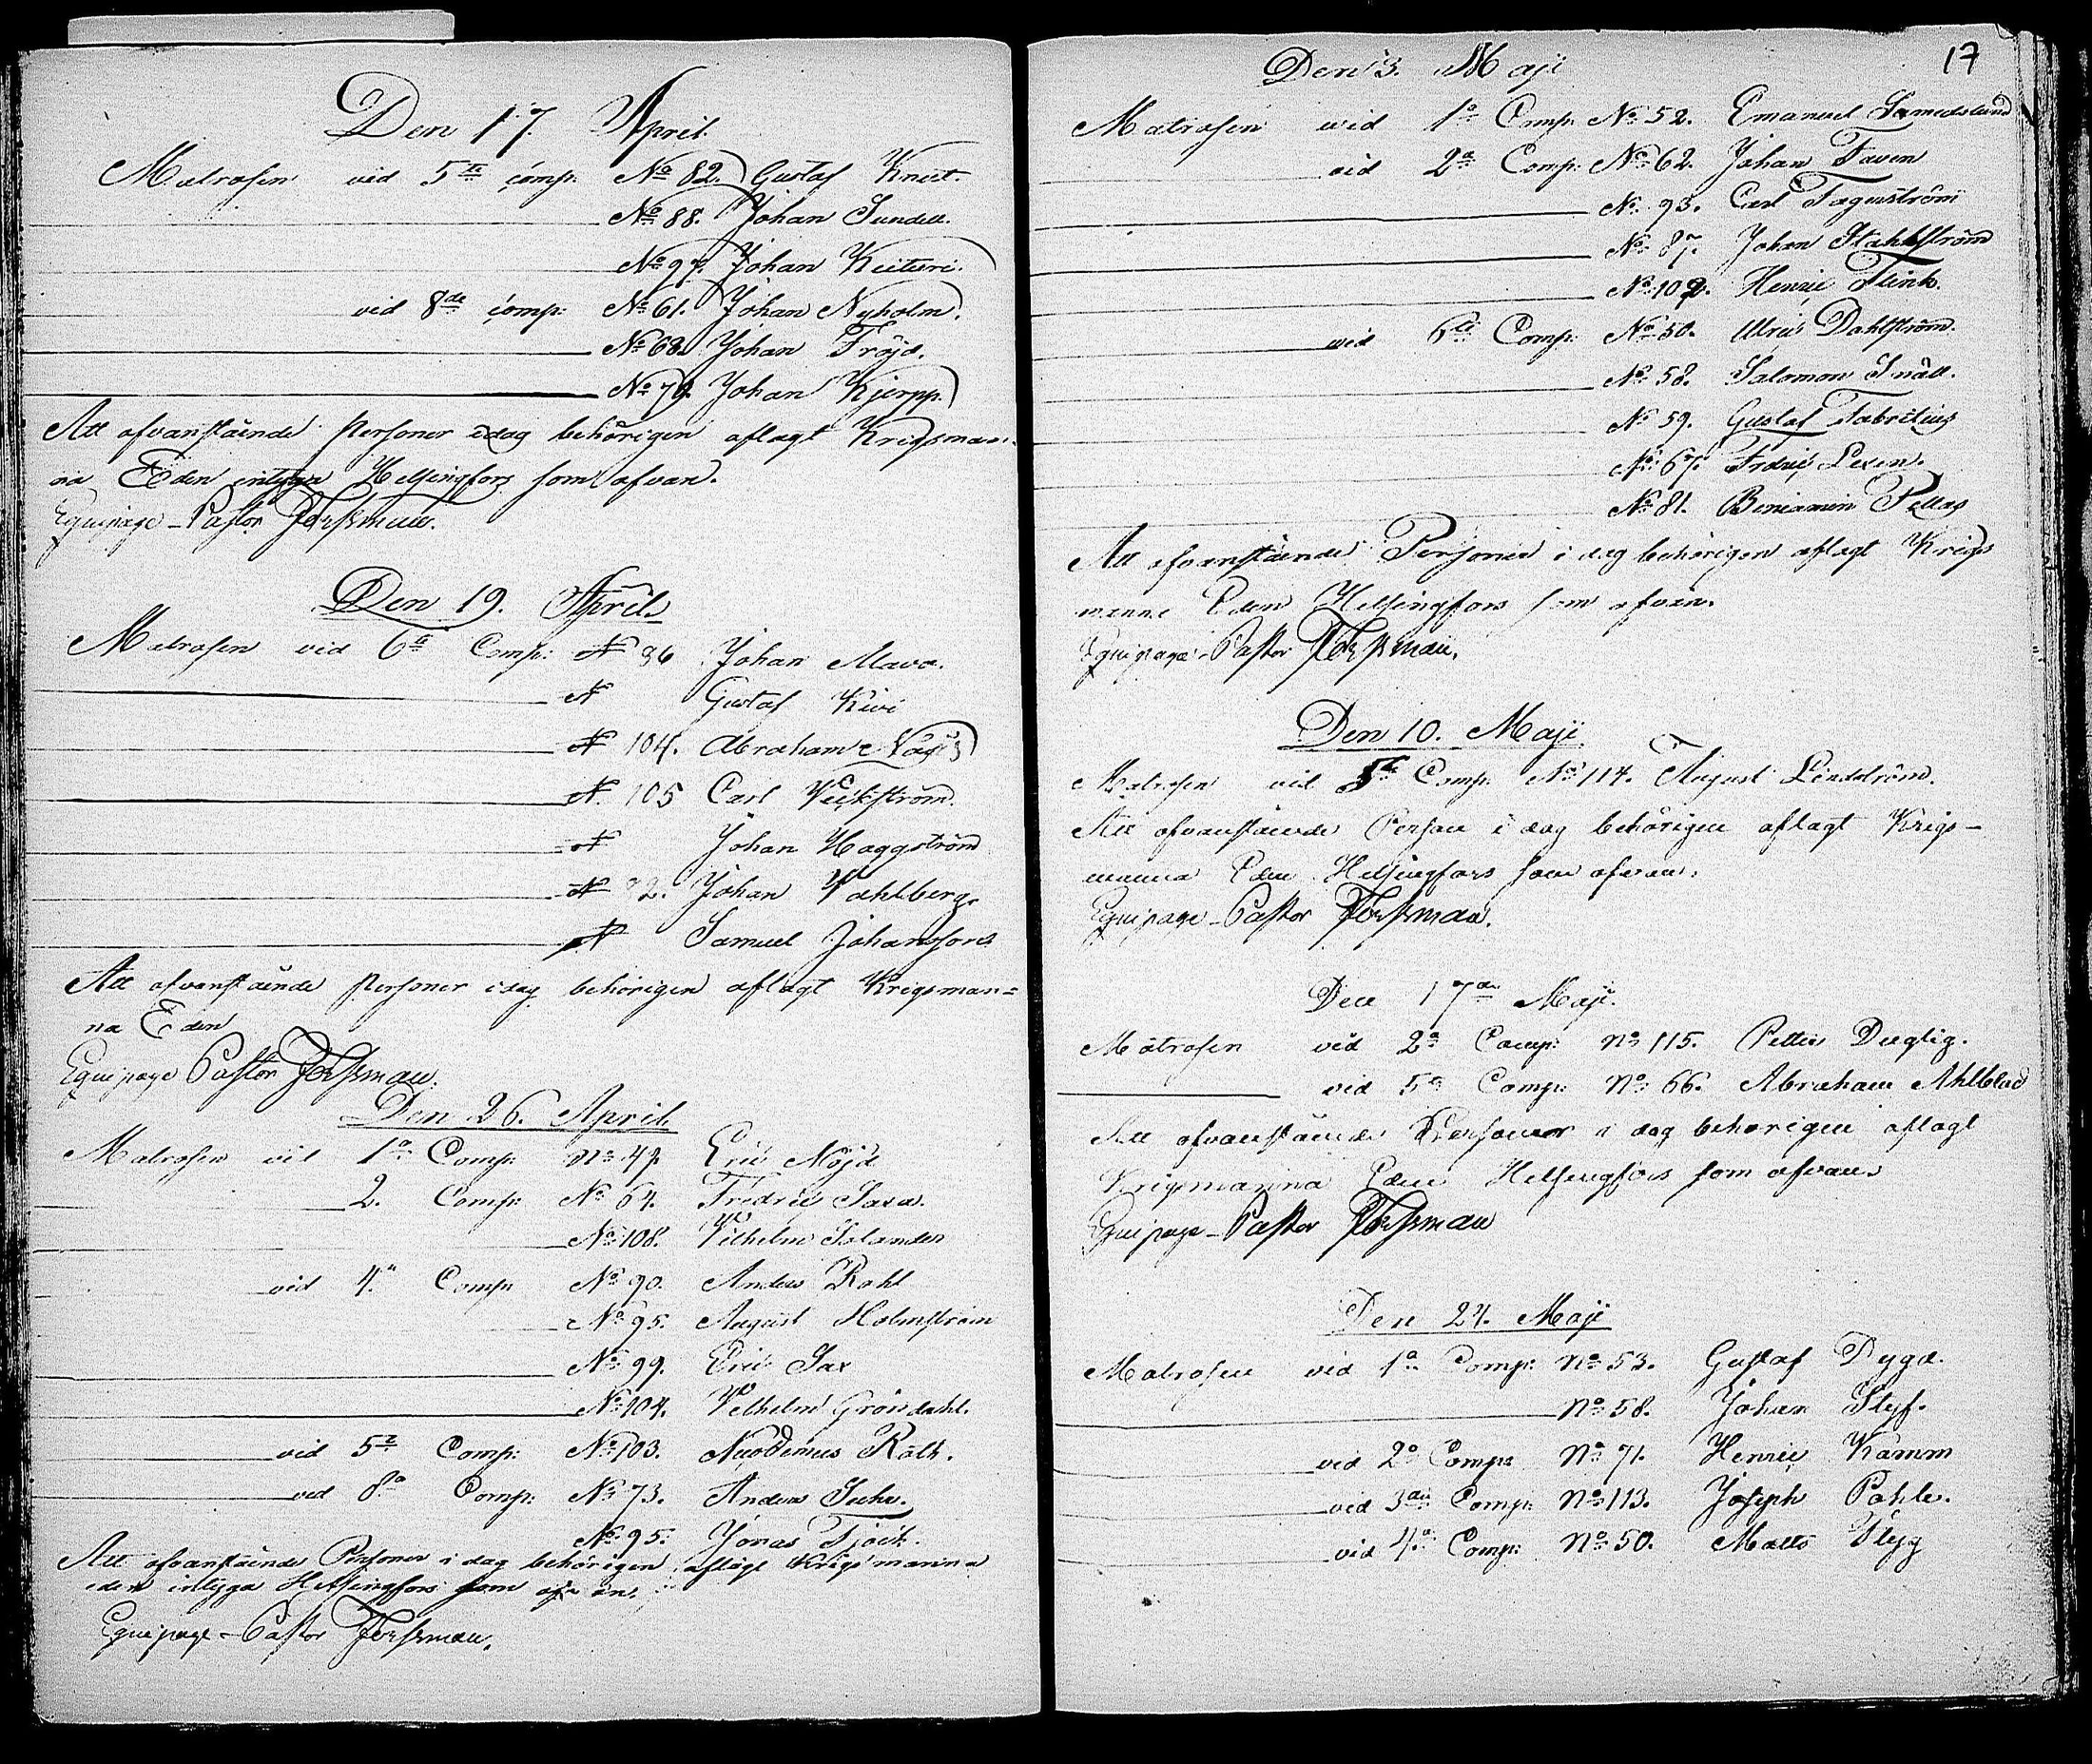 Den 17. April.
Matrosen vid 5te comp: No 82. Gustaf Knut.
No 88. Johan Sundell.
No 97. Johan Keituri.
vid 8de comp: No 61. Johan Nyholm.
No 68. Johan Fröjd.
No 70. Johan Kjerpp.
Att ofvanstående personer idag behörigen aflagt Krigsman-
na Eden intygar Helsingfors som ofvan.
Equipage-Pastor Forssman.
Den 19. April
Matrosen vid 6te Comp: N 96 Johan Mava.
N Gustaf Kivi
N 104. Abraham
N. 105 Carl Veikström.
N Johan Haggström
N 92. Johan Wahlberg.
N Samuel Johansson
Att ofvanstående personer idag behörigen aflagt Krigsman=
na Eden
Equipage Pastor Forssman.
Den 26. April.
Matrosen vid 1a Comp: No 47. Eric Nöjd
2. Comp: No 64. Fredric Saxa.
No 108. Vilhelm Salander
vid 4a Comp No 90. Anders Rahl
No 95. August Holmström
No 99. Eric Sax
No 104. Vilhelm Gröndahl.
vid 5te Comp: No 103. Nicodemus Rath.
vid 8a Comp: No 73. Anders
No 95. Jonas
Att ofvanstående Personer i dag behörigen aflagt Krigsmanna
eden intyga Helsingfors som ofvan.
Equipage-Pastor Forssman.
17
Den 3. Maji
Matrosen vid 1a Comp: No 52. Emanuel
vid 2a Comp: No 62. Johan Faven
No 93. Carl Fagerström
No 87. Johan Stahlström
No 102. Henric Flink.
vid 6te Comp: No 50. Ulric Dahlström.
No 58. Salomon Snäll.
No 59. Gustaf Fabritius
No 67. Fredric Lexen.
No 81. Beniamin Pellas
Att ofvanstående Personer i dag behörigen aflagt Krigs
manna Eden Helsingfors som ofvan.
Equipage-Pastor Forssman.
Den 10. Maji
Matrosen vid 5te Comp: No 114. August Lindström.
Att ofvanstående Person i dag behörigen aflagt Krigs-
manna Eden Helsingfors som ofvan.
Equipage-Pastor Forssman.
Den 17de Maji.
Matrosen vid 2a Comp: No 115. Petter Dugtig.
vid 5te Comp: No 66. Abraham Ahlblad
Att ofvanstående Personer i dag behörigen aflagt
Krigsmanna Eden Helsingfors som ofvan.
Equipage-Pastor Forssman
Den 24. Maji
Matrosen vid 1a Comp: No 53. Gustaf Dygd.
No 58. Johan Styf.
vid 2a Comp: No 71. Henric Kamm
vid 3de Comp: No 113. Joseph Pahle.
vid 4a Comp: No 50. Matts Flyg